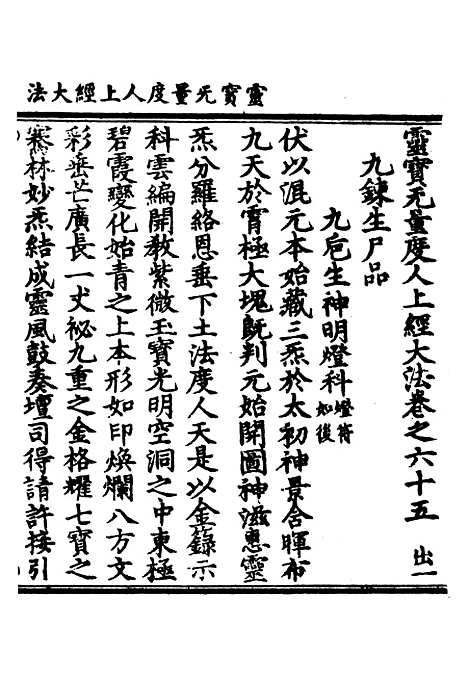 靈寳无量度人上經大法
靈寳无量度人上經大法卷之六十五 出一
九鍊生尸品
九巵生神明燈科燈符如後
伏以混元本始藏三炁於太初神景含暉布
九天於霄極大塊既判元始開圖神滋惠靈
炁分羅絡恩垂下土法度人天是以金籙示
科雲編開教紫微玉寳光明空洞之中東極
碧霞變化始青之上本形如印煥爛八方文
彩垂芒廣長一丈祕九重之金格耀七寳之
騫林妙炁結成靈風鼓奏壇司得請許接引